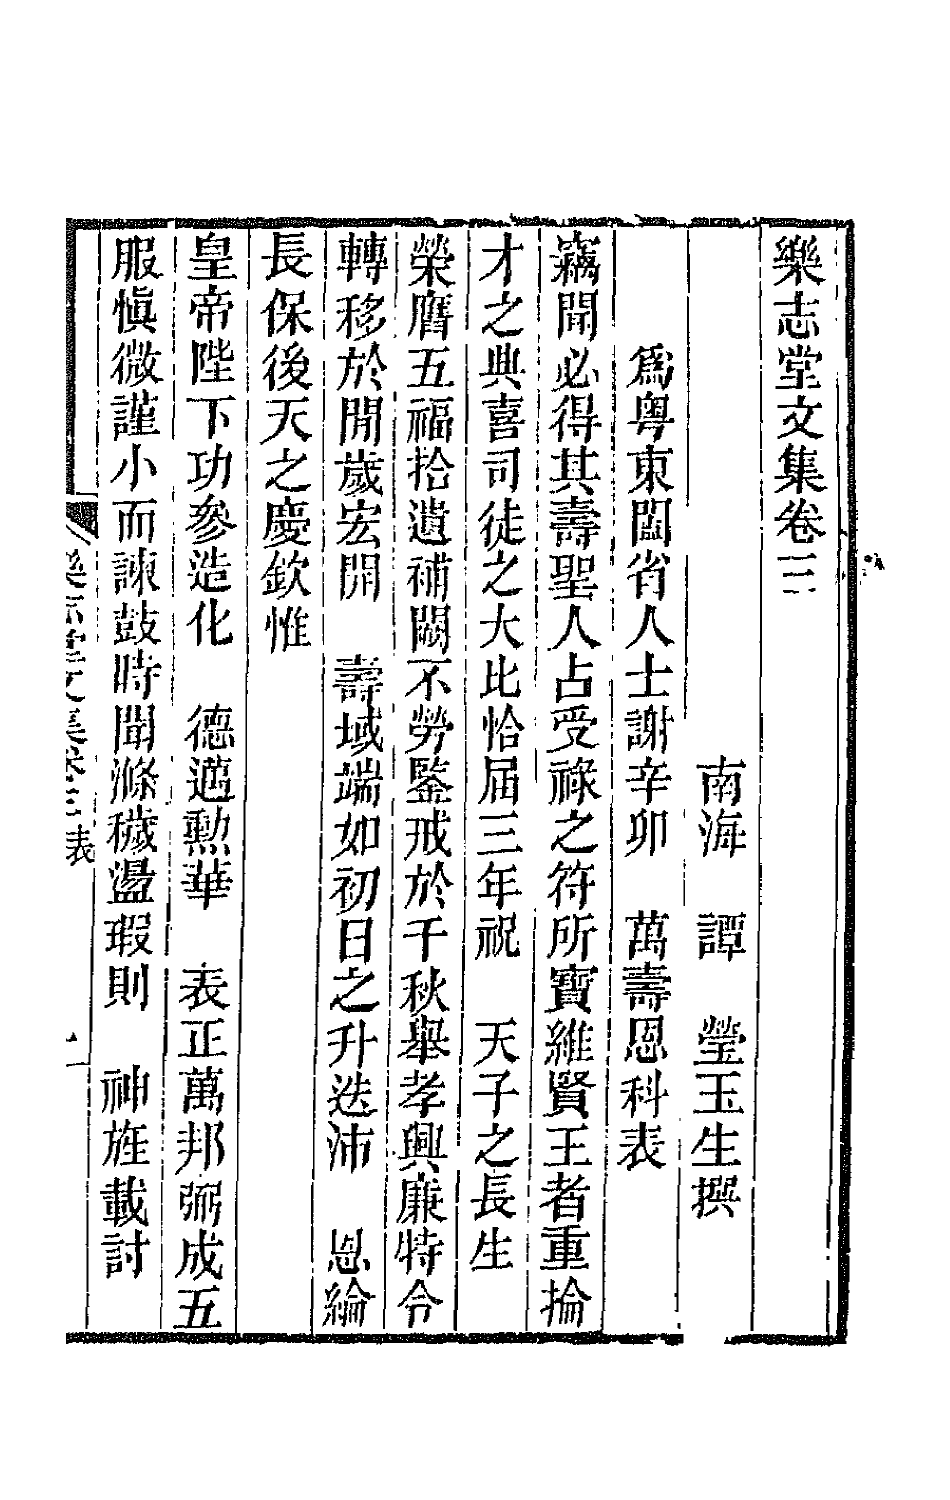 樂志堂文集卷三
南海 譚 瑩玉生撰
爲粵東闔省人士謝辛卯 萬壽恩科表
竊聞必得其壽聖人占受祿之符所寶維賢王者重掄
才之典喜司徒之大比恰屆三年祝 天子之長生
榮膺五福拾遺補闕不勞鑒戒於千秋舉孝興廉特令
轉移於閒歲宏開 壽域端如初日之升迭沛 恩綸
長保後天之慶欽惟
皇帝陛下功參造化 德邁勲華 表正萬邦弼成五
服愼微謹小而諫鼓時聞滌穢盪瑕則 神旌載討
樂志堂文集卷三表 一